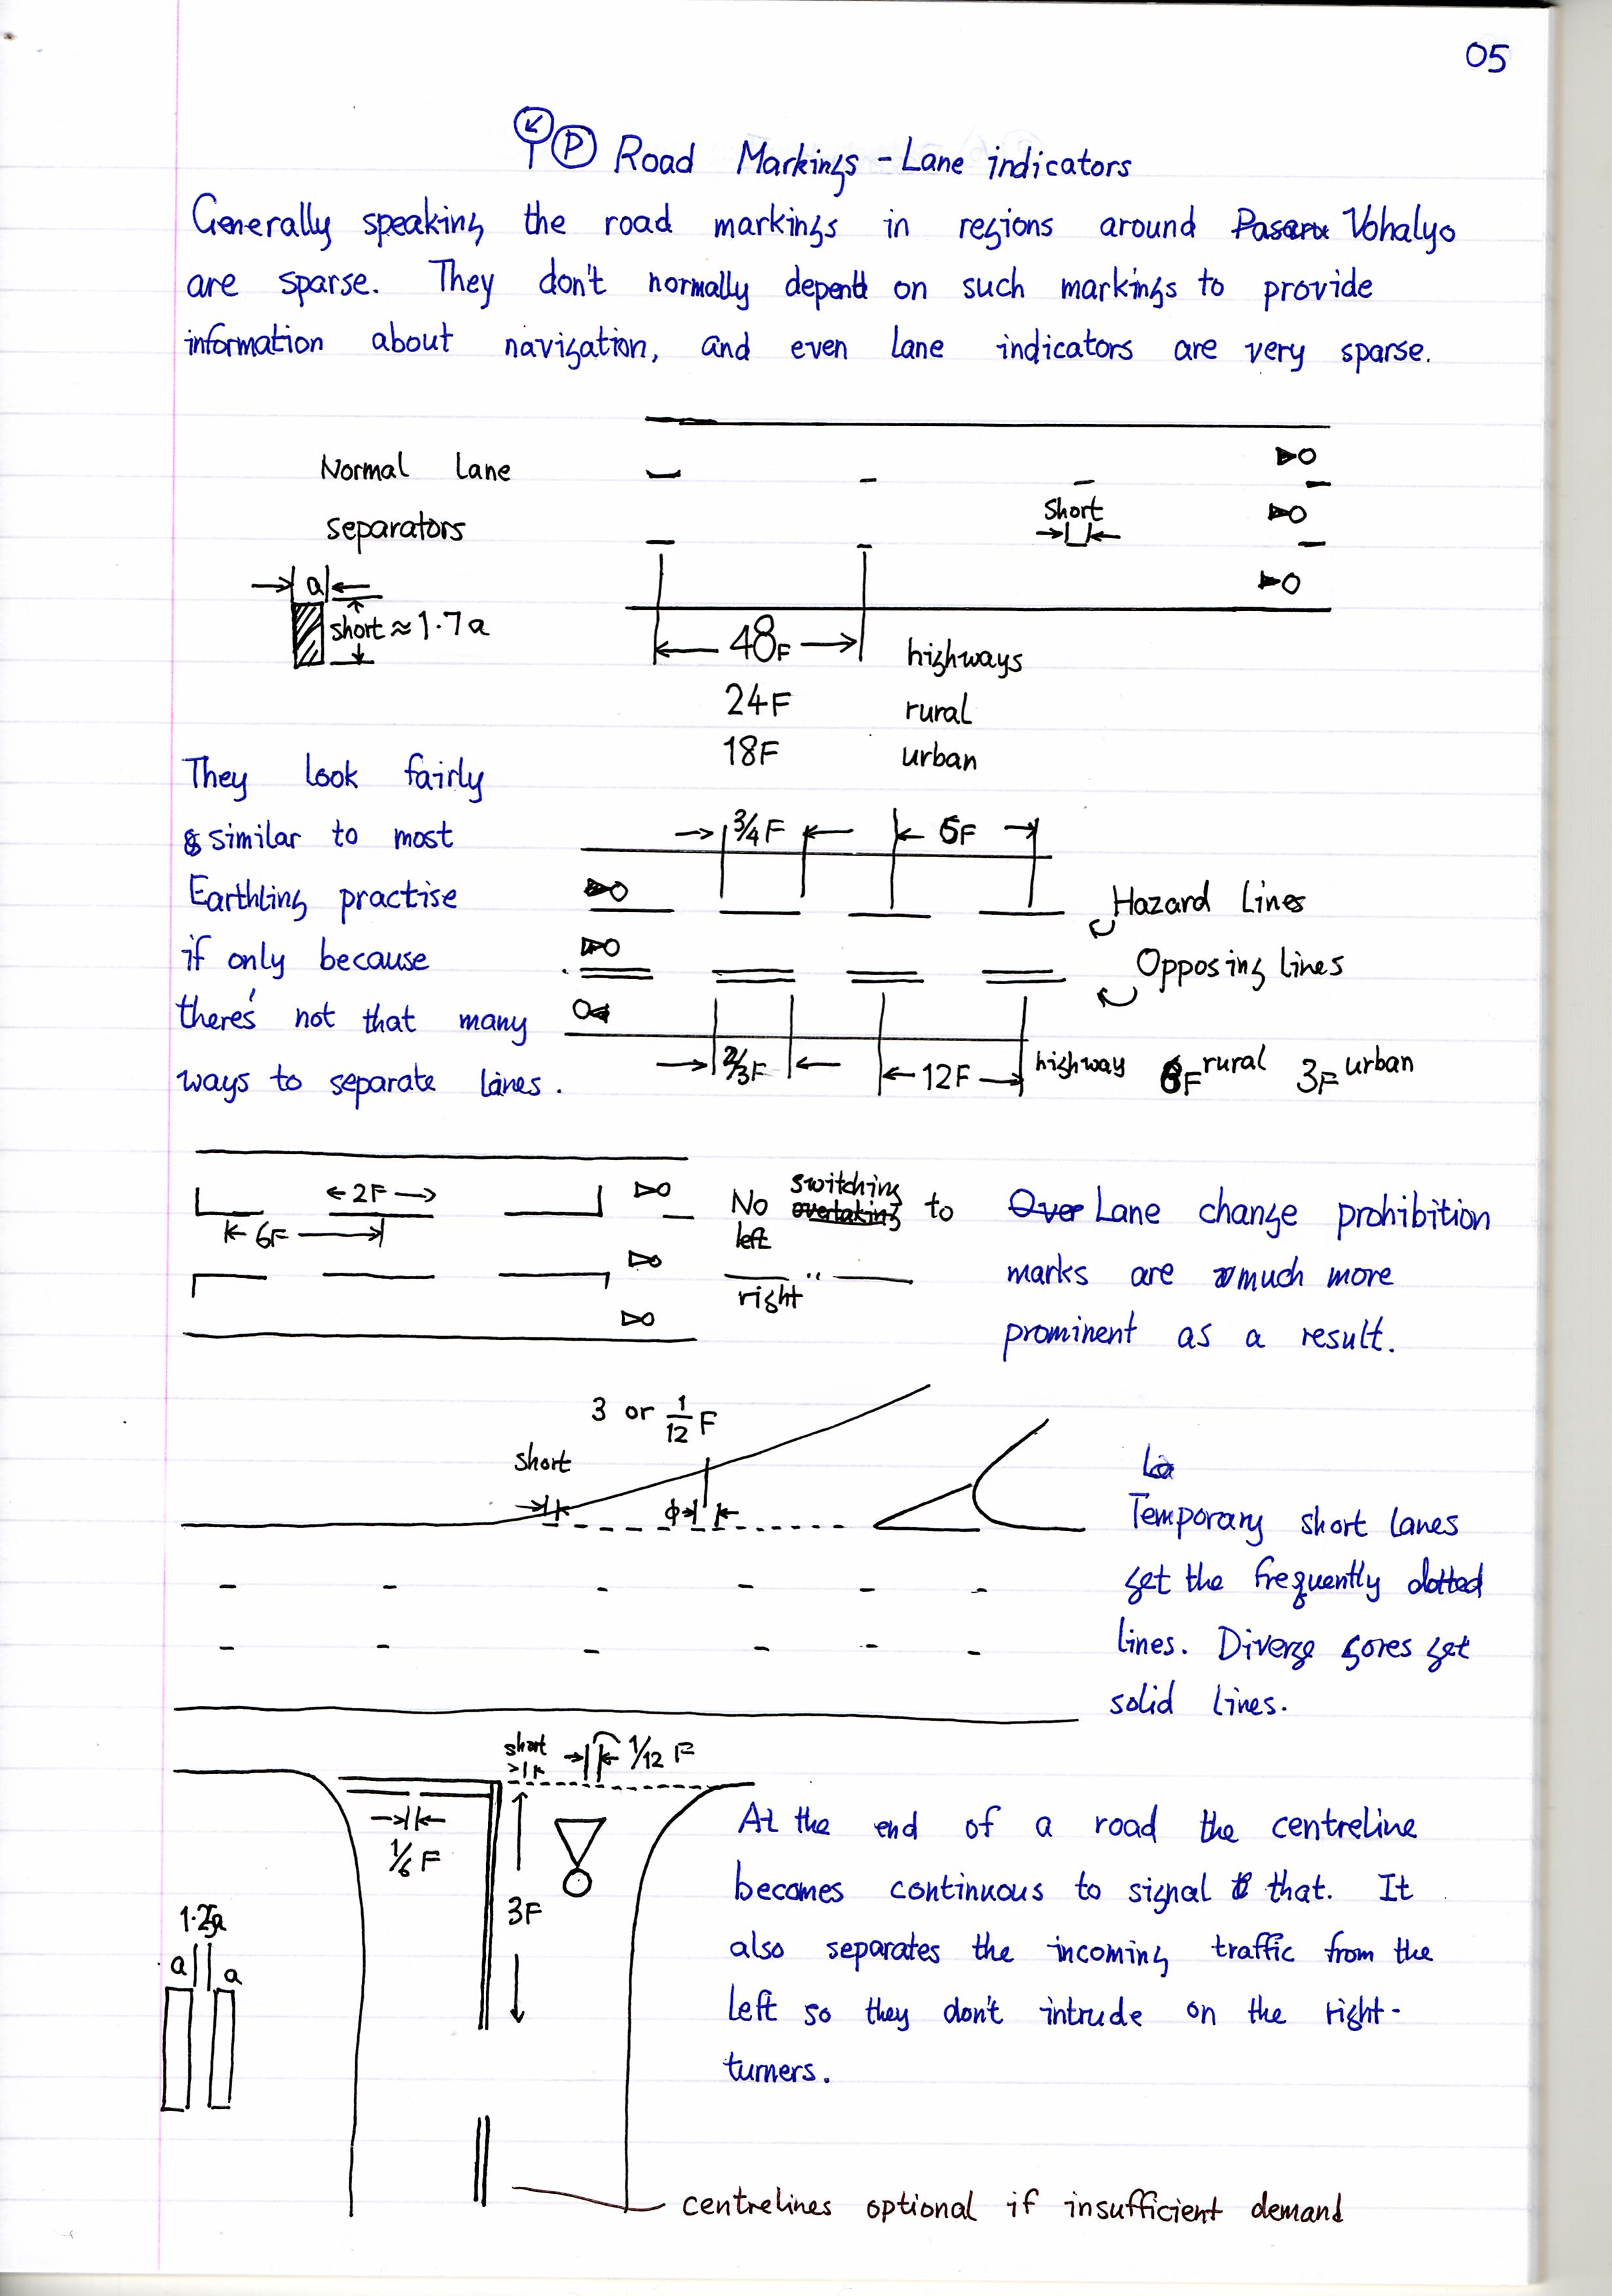 05
P Road Markings - Lane indicators
Generally speaking the road markings in regions around Pasaru Vohalyo
are sparse. They don't normally depend on such markings to provide
information about navigation, and even lane indicators are very sparse.
Normal lane
separators
short
a
short ≈ 1.7a
48F highways
24F rural
18F urban
They look fairly
similar to most
Earthling practise
if only because
there's not that many
ways to separate lanes.
3/4 F
6F
Hazard Lines
Opposing lines
2/3F
12F highway 6F rural 3F urban
2F
6F
No switching to
overtaking
left
right "
Over Lane change prohibition
marks are much more
prominent as a result.
3 or 1/12 F
short
La
Temporary short lanes
get the frequently dotted
lines. Diverge gores get
solid lines.
short
1/12 F
1/6 F
3F
1.25a
a a
At the end of a road the centreline
becomes continuous to signal that. It
also separates the incoming traffic from the
left so they don't intrude on the right-
turners.
centrelines optional if insufficient demand